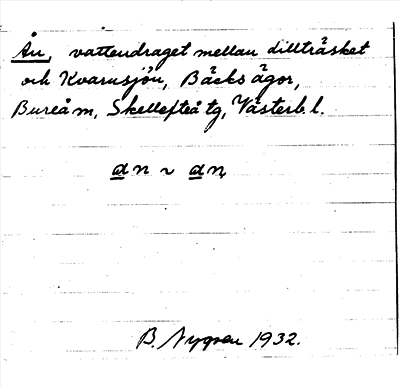 Ån, vattendraget mellan dillträsket
och Kvarnsjön, Bäcks ägor,
Bureå m, Skellefteå tg, Västerb. l.
an ~ an
B. Nygren 1932.